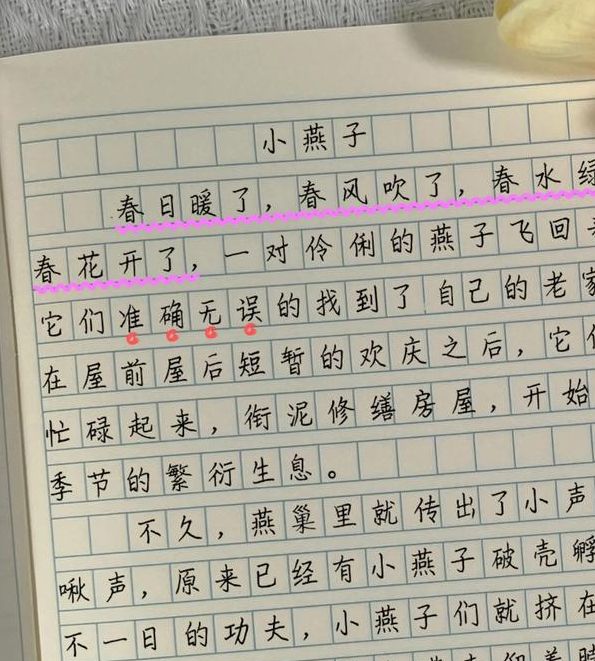 小燕子
春日暖了，春风吹了，春水绿
春花开了，一对伶俐的燕子飞回
它们准确无误的找到了自己的老家
在屋前屋后短暂的欢庆之后，它们
忙碌起来，衔泥修缮房屋，开始
季节的繁衍生息。
不久，燕巢里就传出了小声
啾声，原来已经有小燕子破壳孵
不一日的功夫，小燕子们就挤在